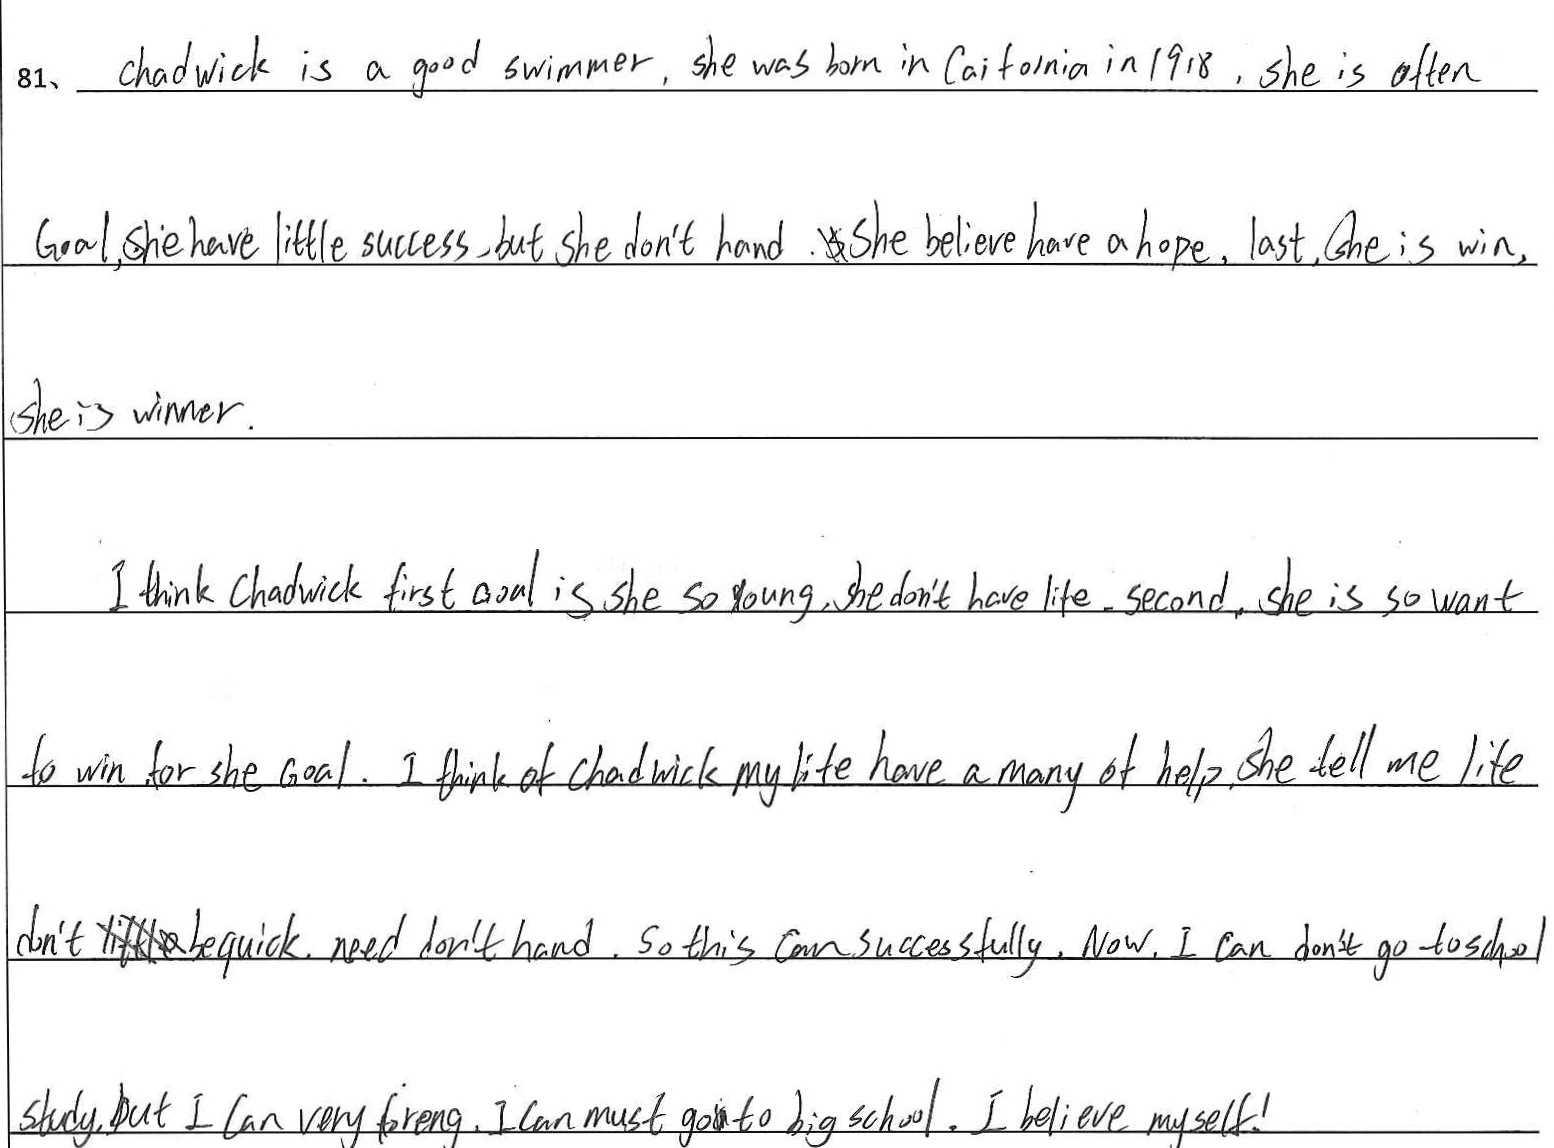 81、 chadwick is a good swimmer, she was born in Caitoinia in 1918, she is often
Goal, she have little success, but she don't hand. She believe have a hope, last, she is win,
she is winner.
I think Chadwick first Goal is she so young, she don't have life. second, she is so want
to win for she Goal. I think of Chadwick my life have a many of help, she tell me life
don't be quick. need don't hand. So this can successfully. Now, I can don't go to school
study, but I Can very foreng. I can must go to big school. I believe myself!